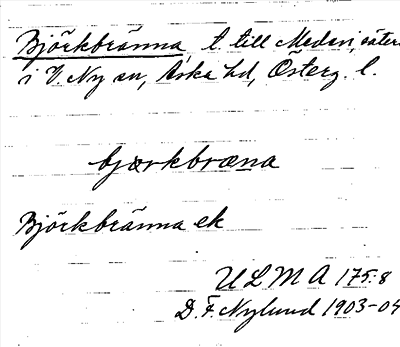 Björkbränna t. till Medevi, säter
i V. Ny sn, Aska hd, Österg. l.
bjørkbræna
Björkbränna ek
ULMA 175:8
D. F. Nylund 1903-04